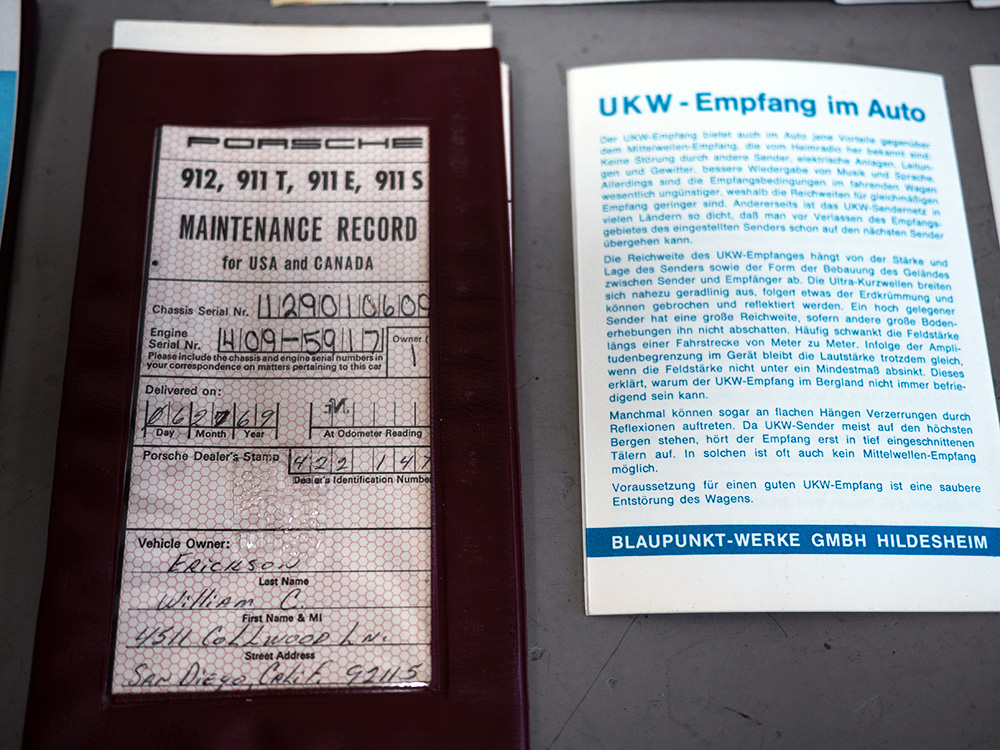 PORSCHE
912, 911 T, 911 E, 911 S
MAINTENANCE RECORD
for USA and CANADA
Chassis Serial Nr. 129010609
Engine
Serial Nr. 409-5917
Owner
1
Please include the chassis and engine serial numbers in
your correspondence on matters pertaining to this car
Delivered on:
69
Day Month Year At Odometer Reading
Porsche Dealer's Stamp 422 147
Dealer's Identification Number
Vehicle Owner:
Erickson
Last Name
William C.
First Name & MI
4511 Collwood Ln.
Street Address
San Diego, Calif. 92115
UKW - Empfang im Auto
Der UKW-Empfang bietet auch im Auto jene Vorteile gegenüber
dem Mittelwellen-Empfang, die vom Heimradio her bekannt sind:
Keine Störung durch andere Sender, elektrische Anlagen, Leitun-
gen und Gewitter, bessere Wiedergabe von Musik und Sprache.
Allerdings sind die Empfangsbedingungen im fahrenden Wagen
wesentlich ungünstiger, weshalb die Reichweiten für gleichmäßigen
Empfang geringer sind. Andererseits ist das UKW-Sendernetz in
vielen Ländern so dicht, daß man vor Verlassen des Empfangs-
gebietes des eingestellten Senders schon auf den nächsten Sender
übergehen kann.
Die Reichweite des UKW-Empfanges hängt von der Stärke und
Lage des Senders sowie der Form der Bebauung des Geländes
zwischen Sender und Empfänger ab. Die Ultra-Kurzwellen breiten
sich nahezu geradlinig aus, folgen etwas der Erdkrümmung und
können gebrochen und reflektiert werden. Ein hoch gelegener
Sender hat eine große Reichweite, sofern andere große Boden-
erhebungen ihn nicht abschatten. Häufig schwankt die Feldstärke
längs einer Fahrstrecke von Meter zu Meter. Infolge der Ampli-
tudenbegrenzung im Gerät bleibt die Lautstärke trotzdem gleich,
wenn die Feldstärke nicht unter ein Mindestmaß absinkt. Dieses
erklärt, warum der UKW-Empfang im Bergland nicht immer befrie-
digend sein kann.
Manchmal können sogar an flachen Hängen Verzerrungen durch
Reflexionen auftreten. Da UKW-Sender meist auf den höchsten
Bergen stehen, hört der Empfang erst in tief eingeschnittenen
Tälern auf. In solchen ist oft auch kein Mittelwellen-Empfang
möglich.
Voraussetzung für einen guten UKW-Empfang ist eine saubere
Entstörung des Wagens.
BLAUPUNKT-WERKE GMBH HILDESHEIM